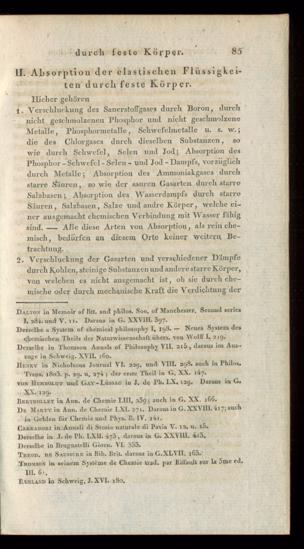 durch feste Körper. 85
II. Absorption der elastischen Flüssigkei-
ten durch feste Körper.
Hieher gehören
1. Verschluckung des Sauerstoffgases durch Boron, durch
nicht geschmolzenen Phosphor und nicht geschmolzene
Metalle, Phosphormetalle, Schwefelmetalle u. s. w.;
die des Chlorgases durch dieselben Substanzen, so
wie durch Schwefel, Selen und Jod; Absorption des
Phosphor-Schwefel-Selen- und Jod-Dampfs, vorzüglich
durch Metalle; Absorption des Ammoniakgases durch
starre Säuren, so wie der sauren Gasarten durch starre
Salzbasen; Absorption des Wasserdampfs durch starre
Säuren, Salzbasen, Salze und andre Körper, welche ei-
ner ausgemacht chemischen Verbindung mit Wasser fähig
sind. — Alle diese Arten von Absorption, als rein che-
misch, bedürfen an diesem Orte keiner weitern Be-
trachtung.
2. Verschluckung der Gasarten und verschiedener Dämpfe
durch Kohlen, steinige Substanzen und andere starre Körper,
von welchen es nicht ausgemacht ist, ob sie durch che-
mische oder durch mechanische Kraft die Verdichtung der
DALTON in Memoir of litt. and philos. Soc. of Manchester, Second series
I. 284. und V. 11. Daraus in G. XXVIII. 397.
Derselbe a System of chemical philosophy I, 198. — Neues System des
chemischen Theils der Naturwissenschaft übers. von Wolff I, 219.
Derselbe in Thomson Annals of Philosophy VII. 215, daraus im Aus-
zuge in Schweig. XVII. 160.
HENRY in Nicholsons Journal VI. 229. und VIII. 298. auch in Philos.
Trans. 1803. p. 29. u. 274; der erste Theil in G. XX. 147.
VON HUMBOLDT und GAY-LUSSAC in J. de Ph. LX. 129. Daraus in G.
XX. 129.
BERTHOLLET in Ann. de Chemie LIII, 239; auch in G. XX. 166.
DE MARTY in Ann. de Chemie LXI. 271. Daraus in G. XXVIII. 417; auch
in Gehlen für Chemie und Phys. B. IV. 141.
CARRADORI in Annali di Storia naturale di Pavia V. 12. u. 15.
Derselbe in J. de Ph. LXII. 473, daraus in G. XXVIII. 413.
Derselbe in Brugnatelli Giorn. VI. 333.
THEOD. DE SAUSSURE in Bib. Brit. daraus in G. XLVII. 163.
THOMSON in seinem Système de Chemie trad. par Riffault sur la 5me ed.
III. 61.
RUHLAND in Schweig. J. XVI. 180.